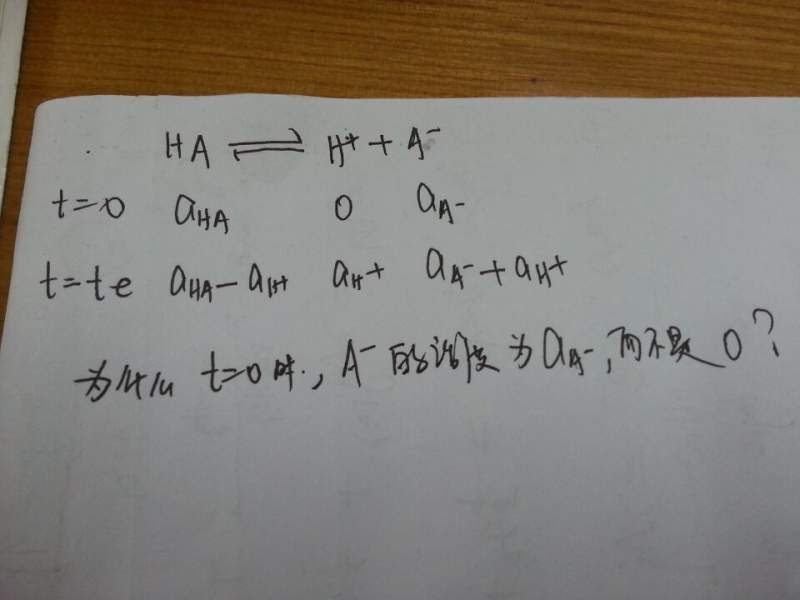 HA ⇌ H⁺ + A⁻
t=0 a_HA 0 a_A⁻
t=te a_HA − a_H⁺ a_H⁺ a_A⁻ + a_H⁺
为什么 t=0时, A⁻的浓度为 a_A⁻, 而不是 0?